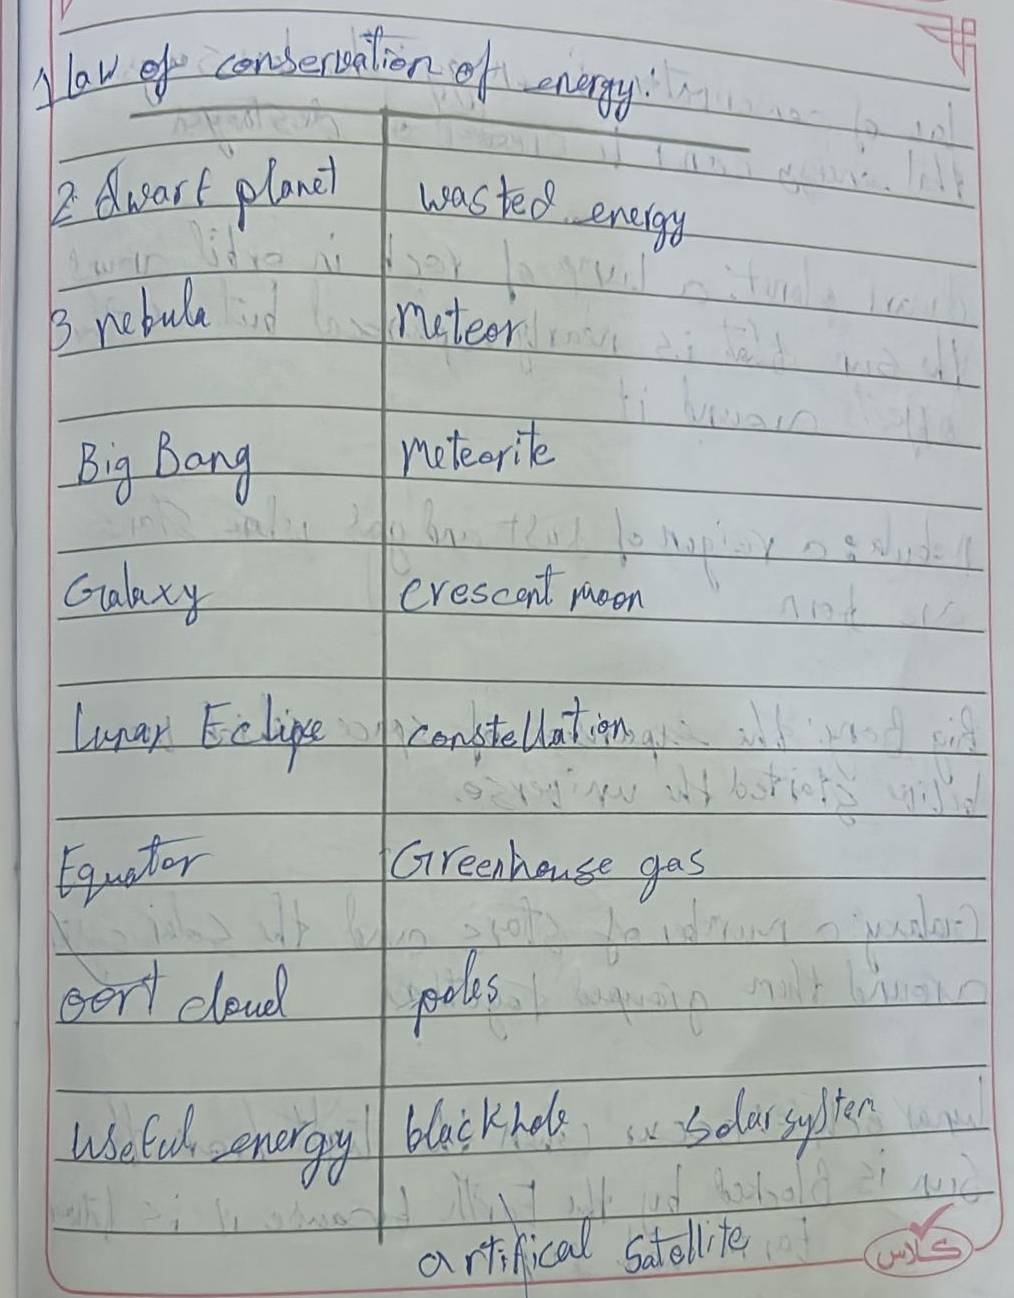 1 law of conservation of energy:
2 dwarf planet wasted energy
3 nebula meteor
Big Bang meteorite
Galaxy crescent moon
Lunar Eclipse constellation
Equator Greenhouse gas
oort cloud poles
useful energy black hole solar system
artifical satellite
كلاس